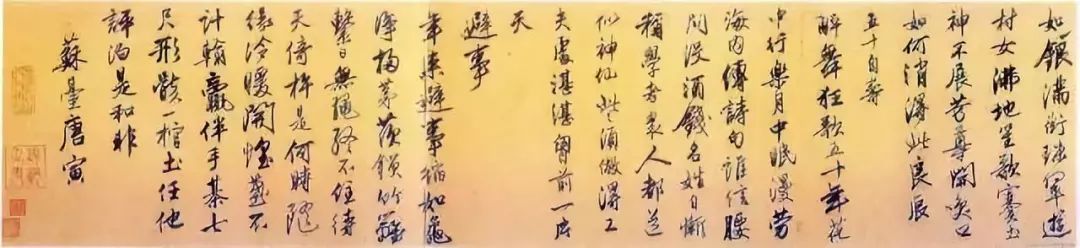 如銀滿街珠翠遊
村女沸地笙歌賽社
神不展芳尊開笑口
如何消得此良辰
五十自壽
醉舞狂歌五十年花
中行樂月中眠漫勞
海內傳詩句誰信腰
間沒酒錢名姓自慚
稱學者眾人都道
似神仙些須做得工
夫處湛湛胸前一片
天
避事
年來避事縮如龜
淨掃茅茨鎖竹籬
繫日無繩終不住待
天倚杵是何時隨
緣冷暖開懷盞不
計輸贏伴手棊七
尺形骸一棺土任他
評泊是和非
蘇臺唐寅